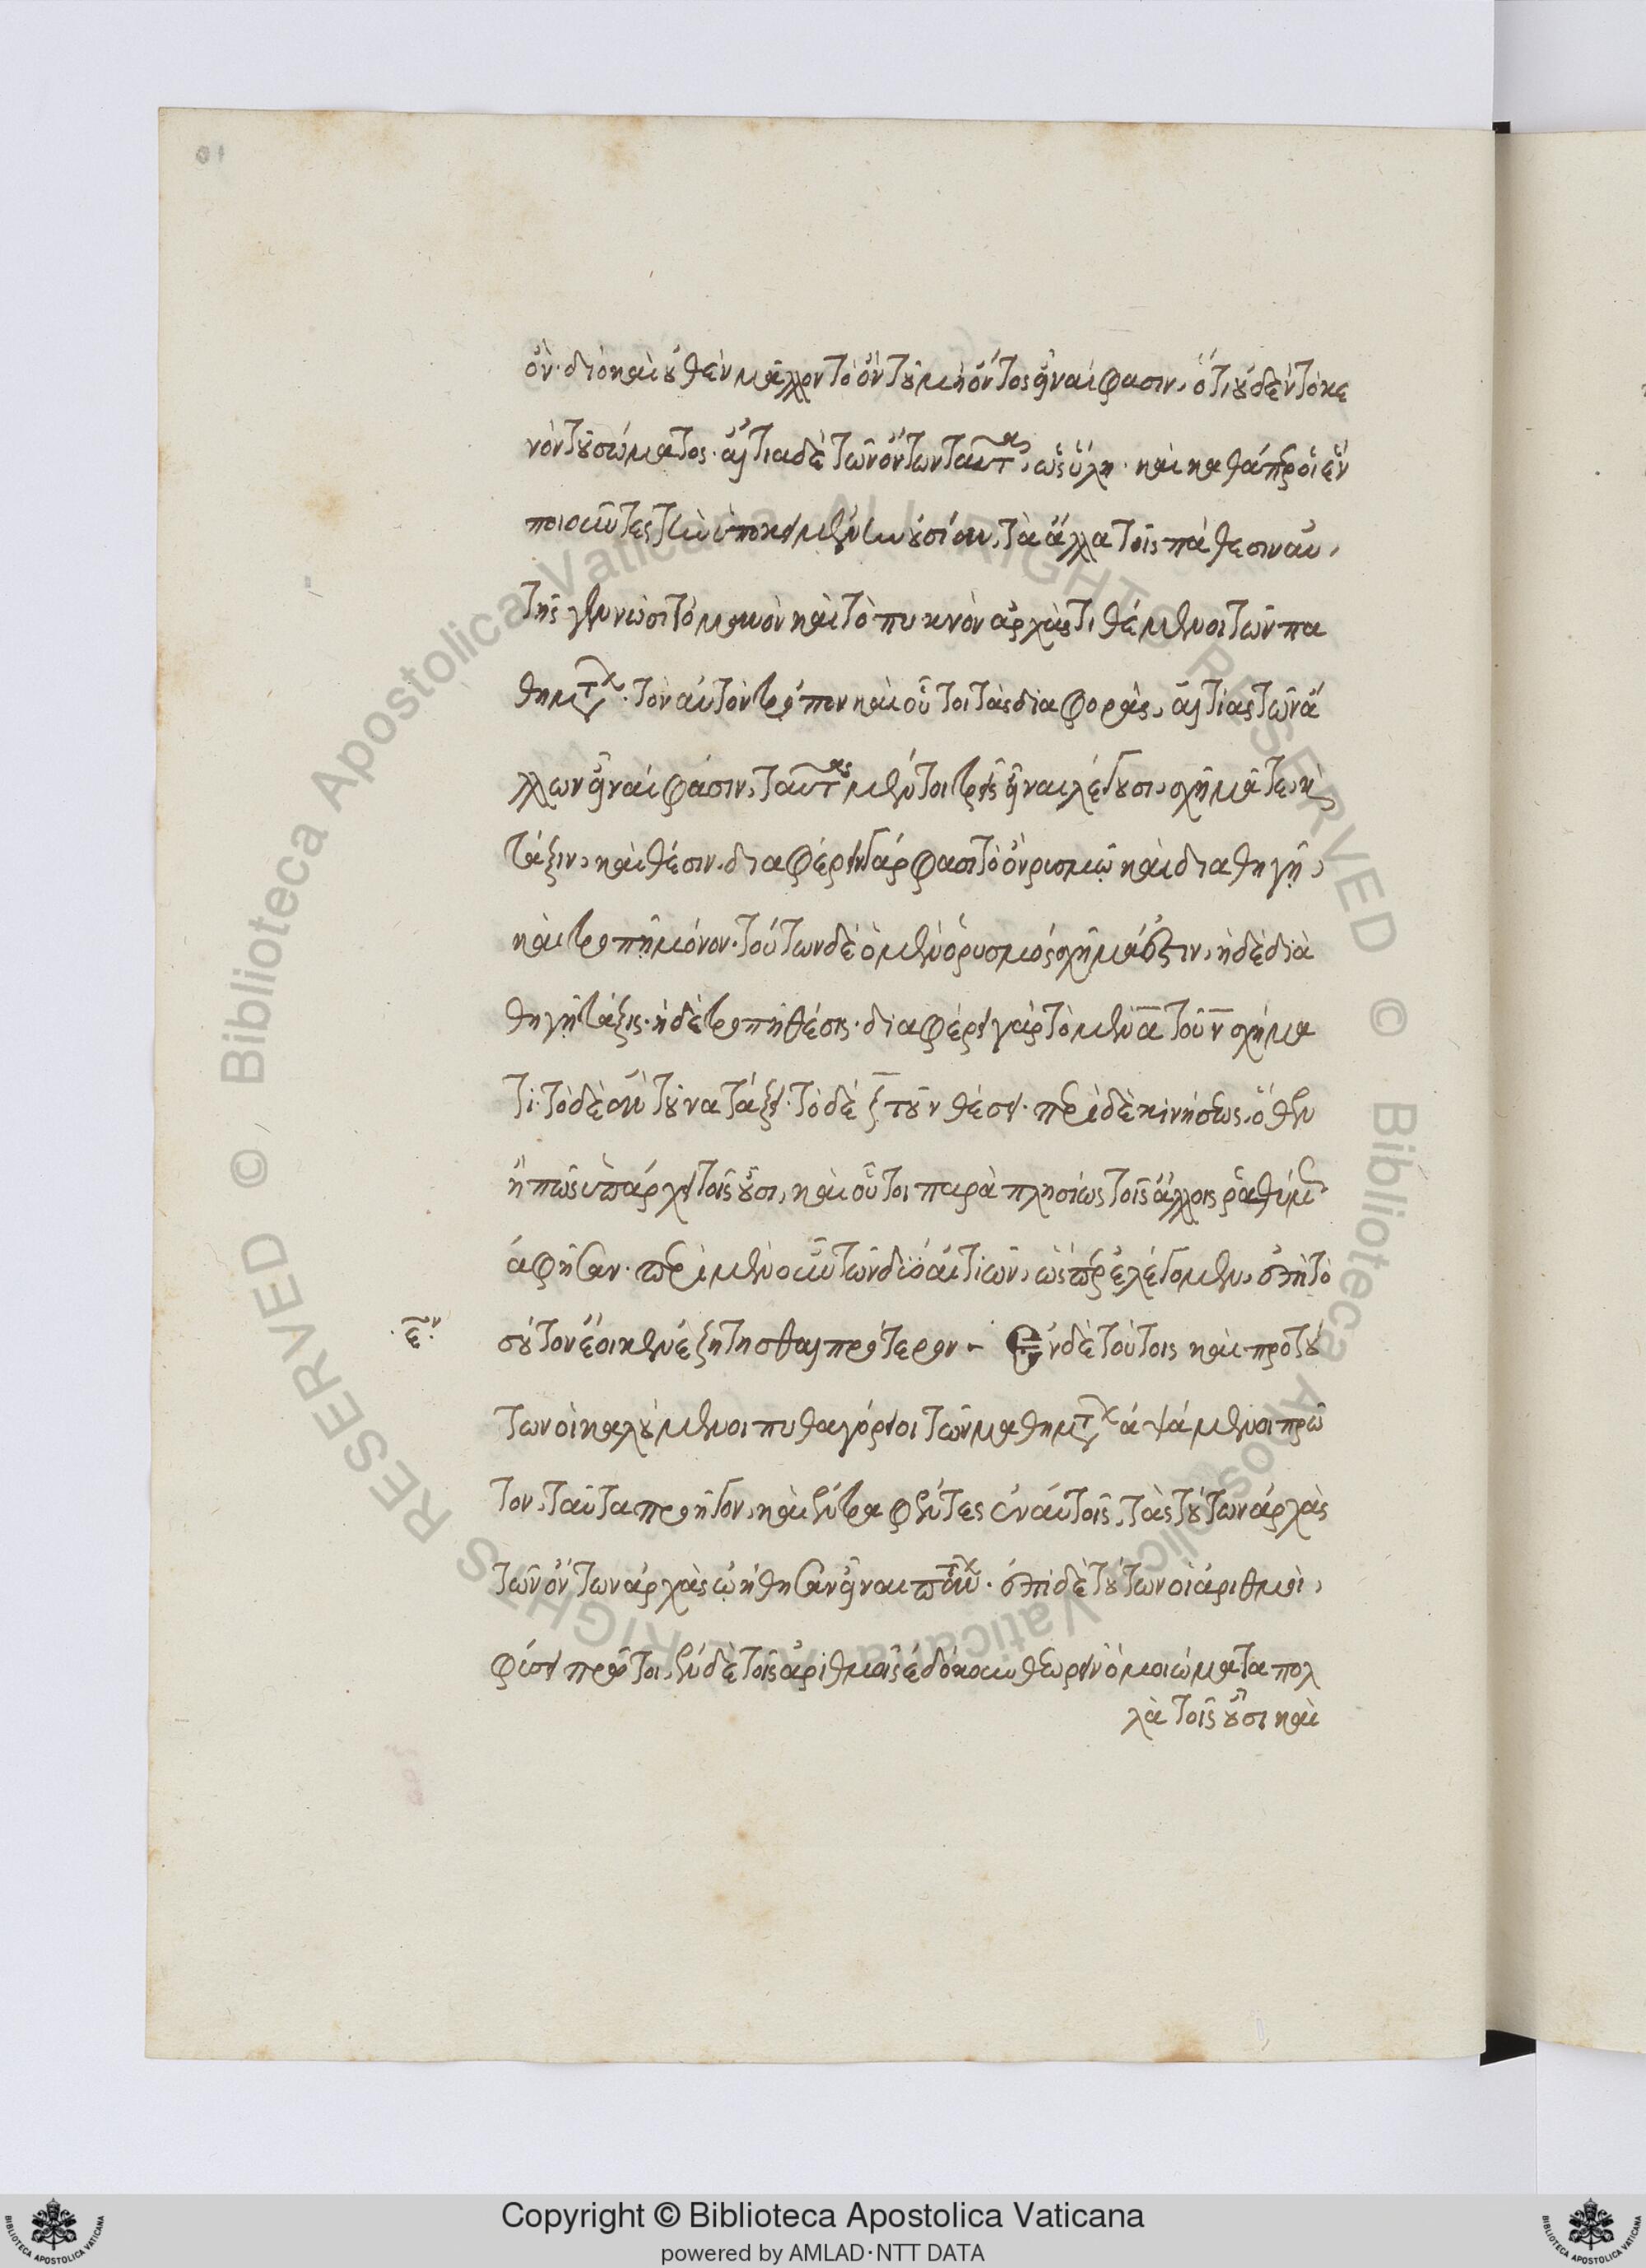 ὄν· διὸ καὶ οὐθὲν μᾶλλον τὸ ὂν τοῦ μὴ ὄντος εἶναί φασιν, ὅτι οὐδὲν τὸ κε
νὸν τοῦ σώματος· αἴτια δὲ τῶν ὄντων ταῦτα, ὡς ὕλη· καὶ καθάπερ οἱ ἓν
ποιοῦντες τὴν ὑποκειμένην οὐσίαν, τὰ ἄλλα τοῖς πάθεσιν αὐ
τῆς γεννῶσι τὸ μανὸν καὶ τὸ πυκνὸν ἀρχὰς τιθέμενοι τῶν πα
θημάτων· τὸν αὐτὸν τρόπον καὶ οὗτοι τὰς διαφορὰς, αἰτίας τῶν ἄ
λλων εἶναί φασιν, ταύτας μέντοι τρεῖς εἶναι λέγουσι, σχῆμά τε, καὶ
τάξιν, καὶ θέσιν. διαφέρειν γάρ φασι τὸ ὂν ῥυσμῷ καὶ διαθηγῇ,
καὶ τροπῇ μόνον· τούτων δὲ ὁ μὲν ῥυσμὸς σχῆμά ἐστιν, ἡ δὲ δια
θηγὴ τάξις· ἡ δὲ τροπὴ θέσις· διαφέρει γὰρ τὸ μὲν α τοῦ ν σχήμα
τι· τὸ δὲ αν τοῦ να τάξει· τὸ δὲ ζ τοῦ ν θέσει· περὶ δὲ κινήσεως, ὅθεν
ἢ πῶς ὑπάρχει τοῖς οὖσι, καὶ οὗτοι παραπλησίως τοῖς ἄλλοις ῥαθύμως
ἀφεῖσαν· περὶ μὲν οὖν τῶν δύο αἰτιῶν, ὥσπερ ἐλέγομεν, ἐπὶ το
σοῦτον ἔοικεν ἐζητῆσθαι πρότερον – Ἐν δὲ τούτοις καὶ πρὸ τού
των οἱ καλούμενοι πυθαγόρειοι τῶν μαθημάτων ἁψάμενοι πρῶ
τον, ταῦτα προῆγον, καὶ ἐντραφέντες ἐν αὐτοῖς, τὰς τούτων ἀρχὰς
τῶν ὄντων ἀρχὰς ᾠήθησαν εἶναι πάντων· ἐπεὶ δὲ τούτων οἱ ἀριθμοὶ,
φύσει πρῶτοι, ἐν δὲ τοῖς ἀριθμοῖς ἐδόκουν θεωρεῖν ὁμοιώματα πολ
λὰ τοῖς οὖσι καὶ
Copyright © Biblioteca Apostolica Vaticana
powered by AMLAD·NTT DATA